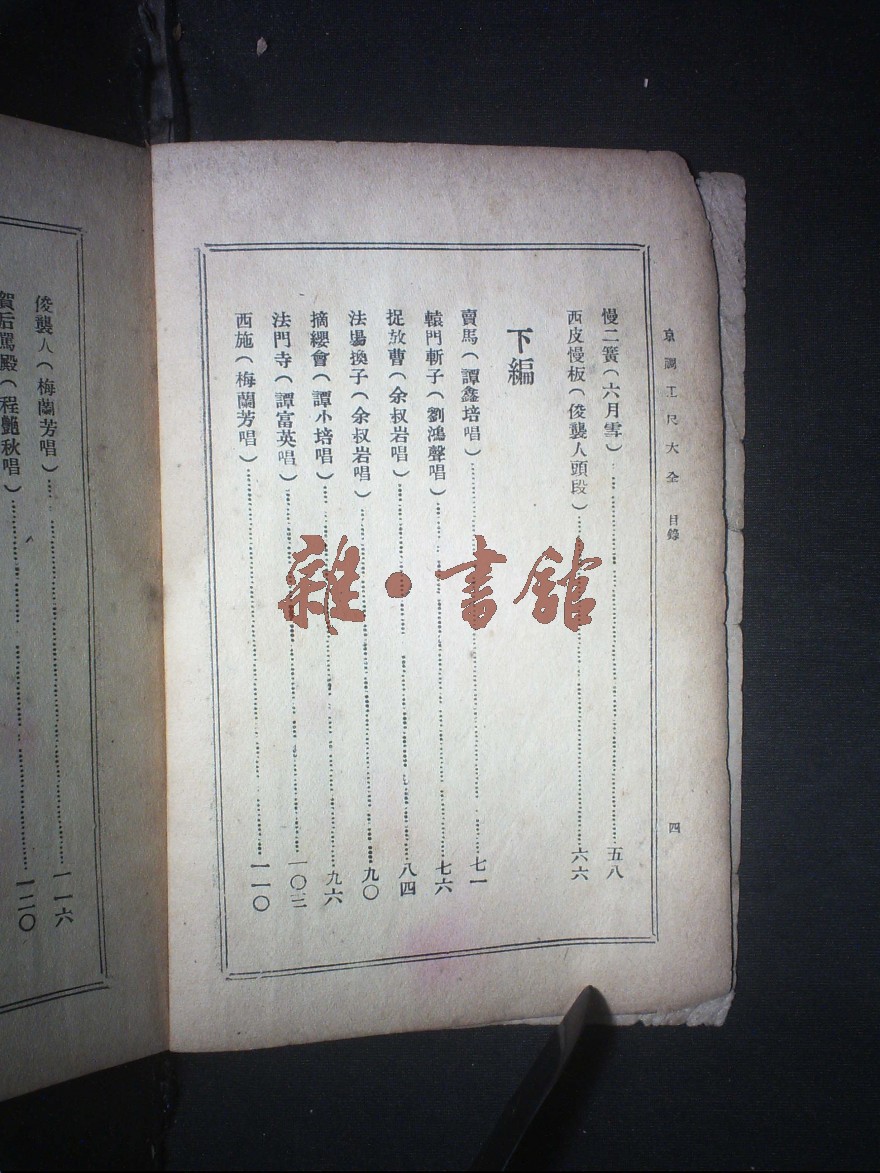 京調工尺大全 目錄
四
慢二簧(六月雪)⋯⋯五八
西皮慢板(俊襲人頭段)⋯⋯六六
下編
賣馬(譚鑫培唱)⋯⋯七一
轅門斬子(劉鴻聲唱)⋯⋯七六
捉放曹(余叔岩唱)⋯⋯八四
法場換子(余叔岩唱)⋯⋯九〇
摘纓會(譚小培唱)⋯⋯九六
法門寺(譚富英唱)⋯⋯一〇三
西施(梅蘭芳唱)⋯⋯一一〇
俊襲人(梅蘭芳唱)⋯⋯一一六
賀后罵殿(程艶秋唱)⋯⋯一二〇
雜·書館